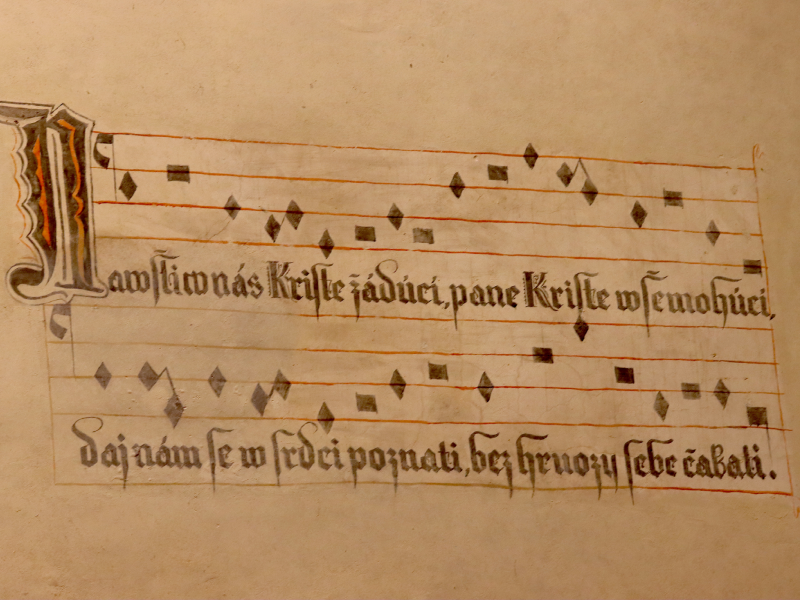 Nawštiw nás Kriste žádúcí, pane Kriste wšemohúcí,
daj nám se w srdci poznati, bez hruozy sebe čakati.